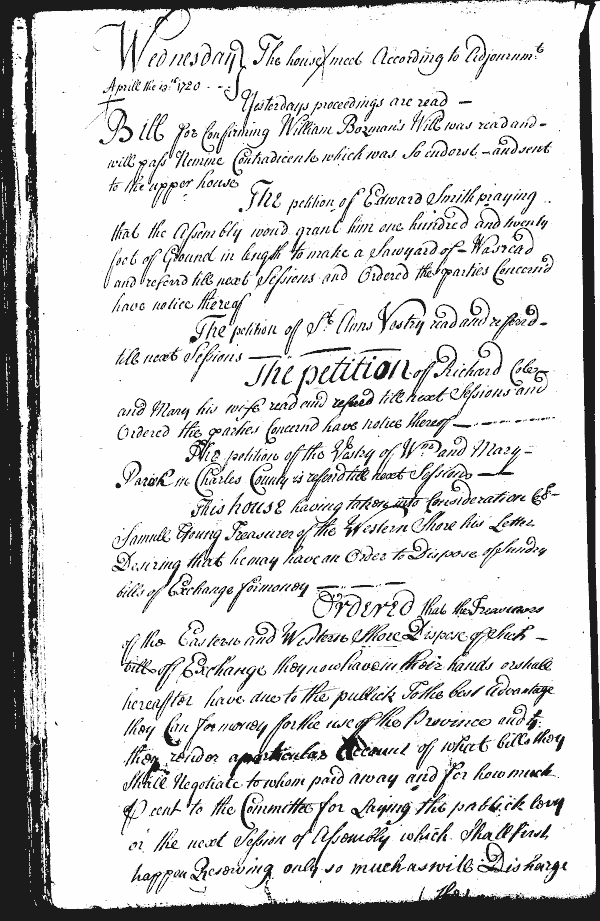 Wednesday } The house meet According to Adjournmt
Aprill the 13th 1720
Yesterdays proceedings are read —
Bill for Confirming William Bozman's Will was read and -
will pass Nemine Contradicente which was So endorst - and sent
to the upper house
The petition of Edward Smith praying
that the Assembly would grant him one hundred and twenty
foot of Ground in length to make a Sawyard of - Was read
and referrd till next Sessions and Ordered the parties Concernd
have notice thereof
The petition of St Anns Vestry read and refferd -
till next Sessions —
The petition of Richard
and Mary his wife read and referd till next Sessions and
Ordered the parties Concernd have notice thereof —
The petition of the Vestry of Wm and Mary -
Parish in Charles County is referd till next Sessions —
This house having taken into Consideration
Samuel Young Treasurer of the Western Shore his Letter
Desiring that he may have an Order to Dispose of Sundry
bills of Exchange for money —
Ordered that the Treasurers
of the Eastern and Western Shore Dispose of Such -
bills of Exchange they now have in their hands or shall
hereafter have due to the publick To the best Advantage
they Can for money for the use of the Province and
they render a particular Account of what bills they
Shall Negotiate to whom paid away and for how much
cent to the Committee for Laying the publick levy
or the next Session of Assembly which Shall first
happen Reserving only so much as will Discharge
the